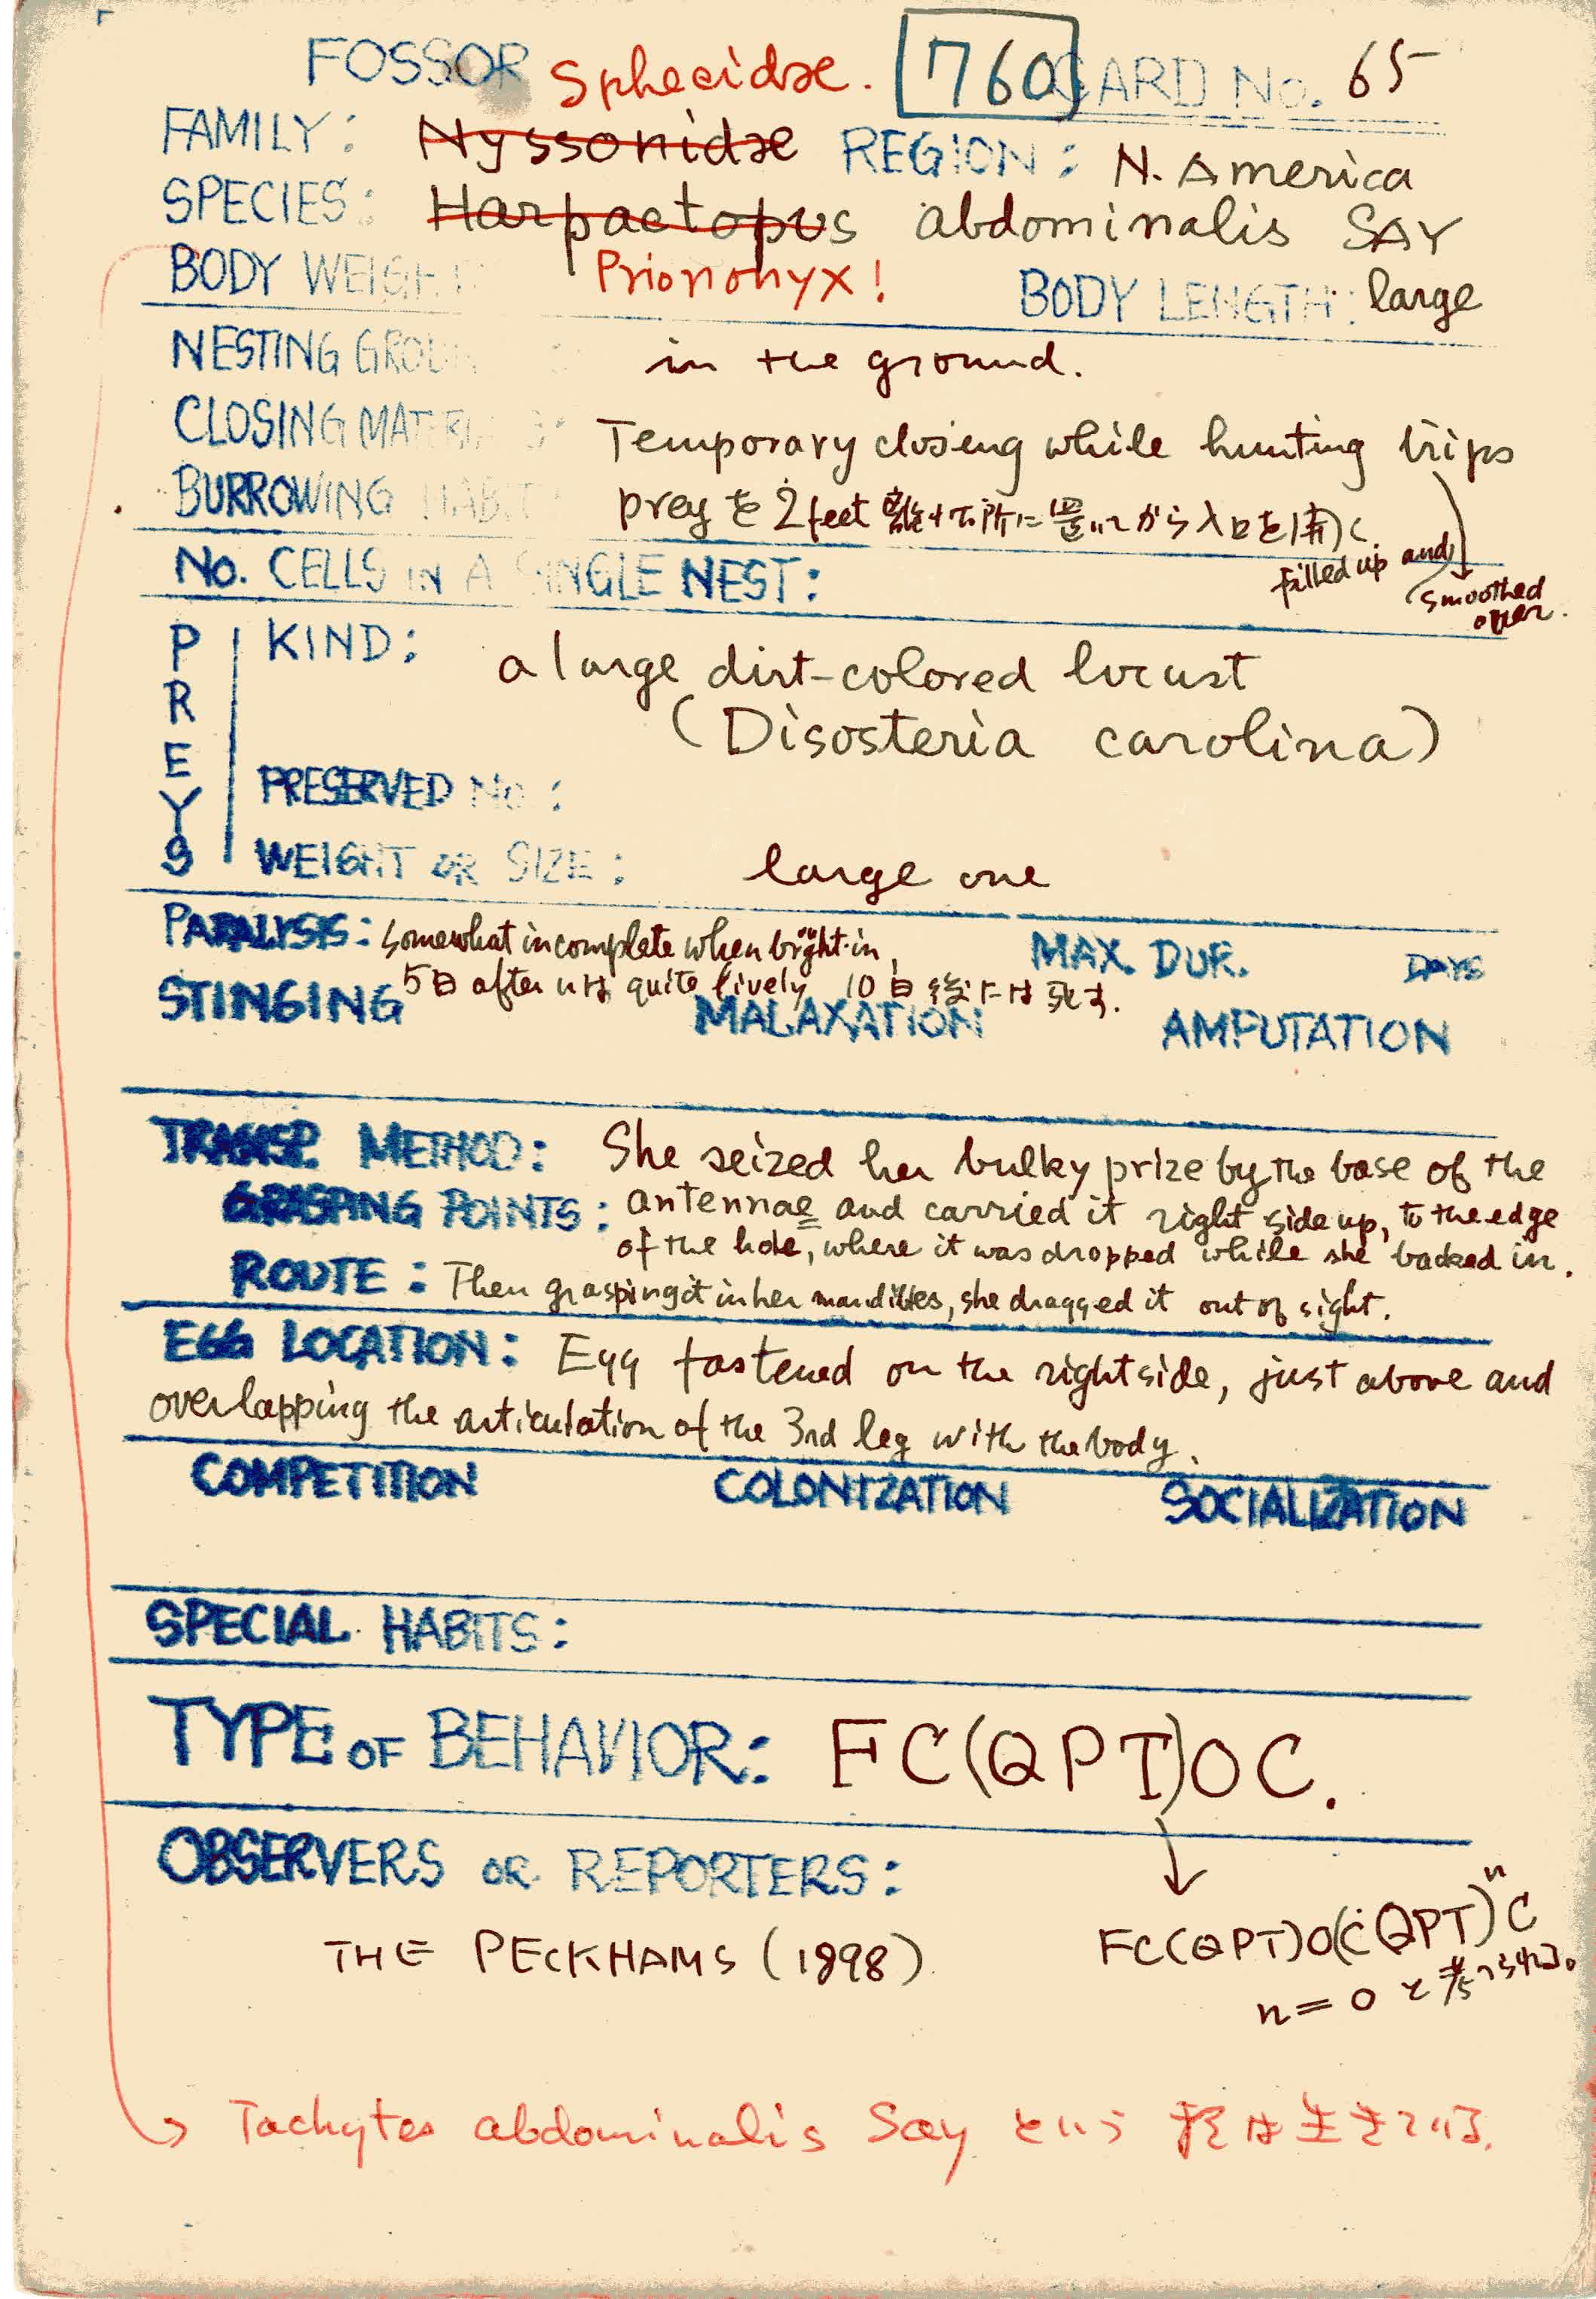 FOSSOR Sphecidae. 760 CARD No. 65
FAMILY: Nyssonidae REGION: N. America
SPECIES: Harpactopus abdominalis SAY
BODY WEIGHT Prionomyx! BODY LENGTH: large
NESTING GROUND in the ground.
CLOSING MATERIALS: Temporary closing while hunting trips
BURROWING HABIT prey を 2 feet 離れた所に置いてから入口を開く.
filled up and smoothed over.
No. CELLS IN A SINGLE NEST:
PREYS
KIND: a large dirt-colored locust
(Disosteria carolina)
PRESERVED No.:
WEIGHT OR SIZE: large one
PARALYSIS: somewhat incomplete when brought in, MAX. DUR. DAYS
5日 after には quite lively 10日後には死す.
STINGING MALAXATION AMPUTATION
TRANSP. METHOD: She seized her bulky prize by the base of the
GRASPING POINTS: antennae and carried it right side up, to the edge
of the hole, where it was dropped while she backed in.
ROUTE: Then grasping it in her mandibles, she dragged it out of sight.
EGG LOCATION: Egg fastened on the right side, just above and
overlapping the articulation of the 3rd leg with the body.
COMPETITION COLONIZATION SOCIALIZATION
SPECIAL HABITS:
TYPE OF BEHAVIOR: FC(QPT)OC.
OBSERVERS OR REPORTERS:
THE PECKHAMS (1898) FC(QPT)O(CQPT)ⁿC
n=0 と考へられる。
Tachytes abdominalis Say という種は生きている.